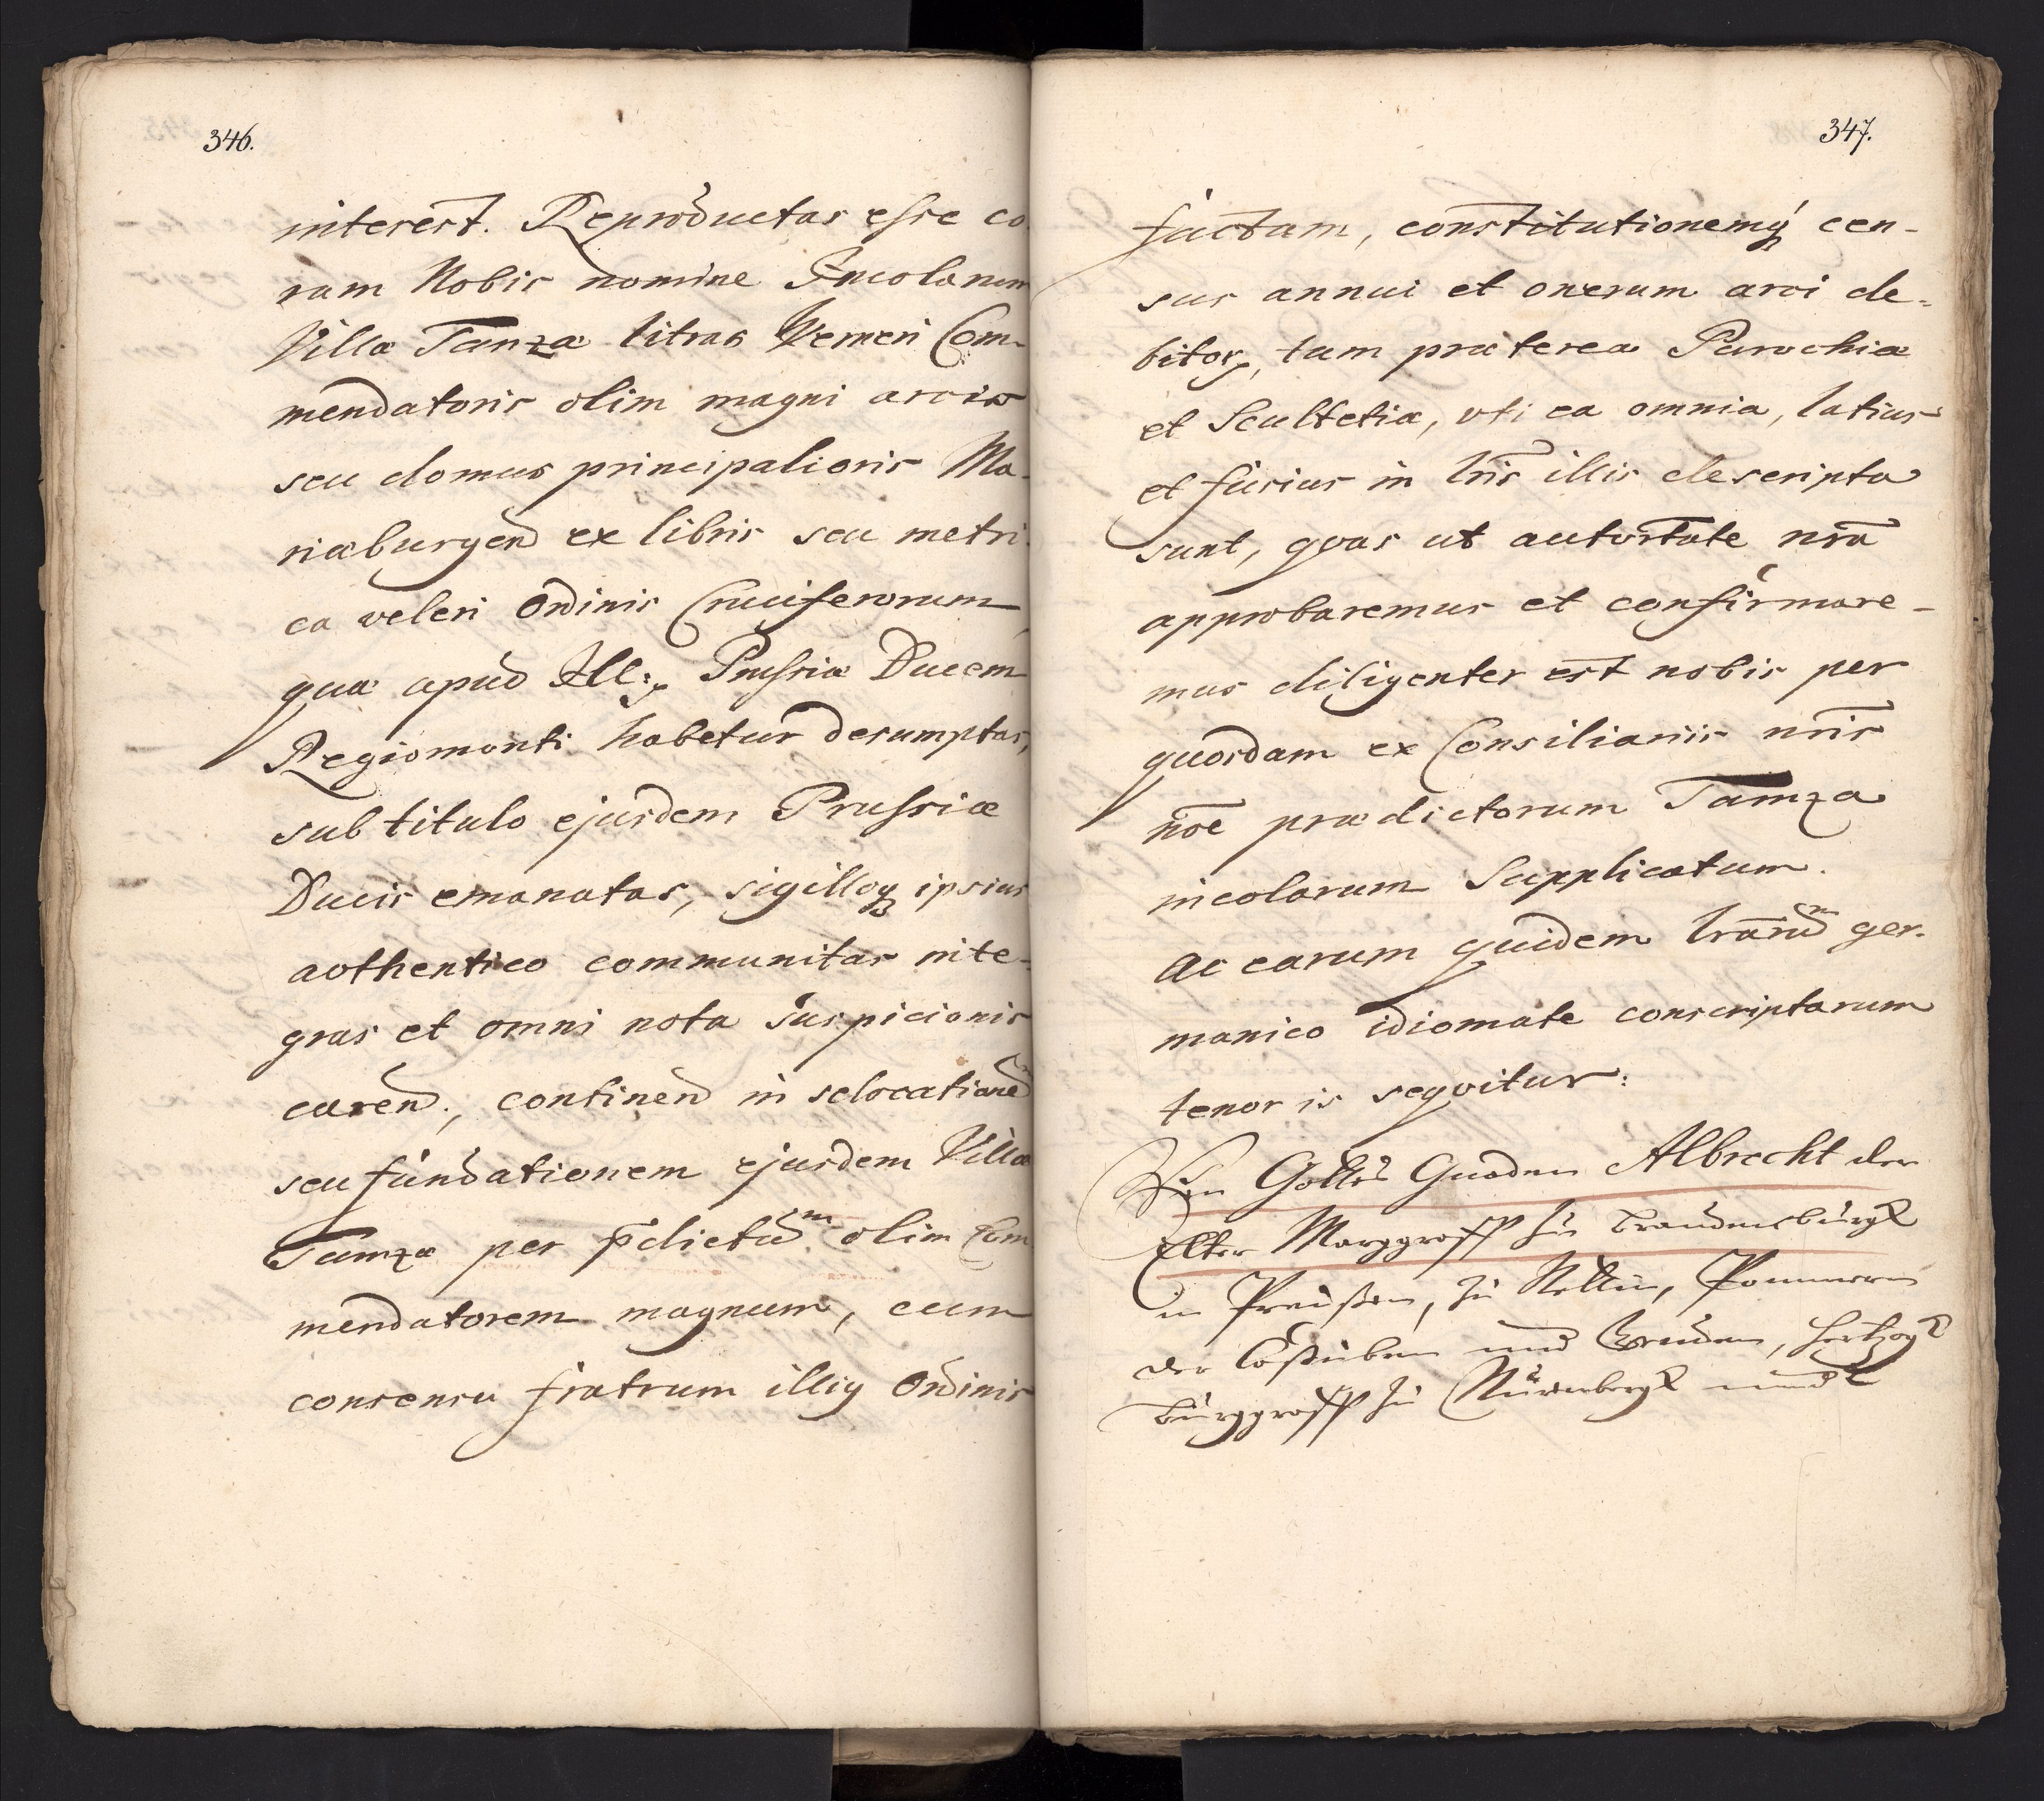 346.
interest. Reproductas esse co-
ram Nobis nomine Incolarum
Villæ Tanza litras Werneri Com-
mendatoris olim magni arcis
seu domus principalioris Ma-
riæburgen ex libris seu metri-
ca veteri Ordinis Cruciferorum
quæ apud Ill: Prussiæ Ducem
Regiomonti habetur desumptas,
sub titulo ejusdem Prussiæ
Ducis emanatas, sigilloq ipsius
authentico communitas inte-
gras et omni nota suspicionis
caren., continen in se locatione
seu fundationem ejusdem Villæ
Tamza per pdictum olim Com
mendatorem magnum, cum
consensu fratrum illig Ordinis
347.
factam, constitutionemq cen-
sus annui et onerum arci de-
bitor, tam præterea Parochiæ
et Scultetiæ, uti ea omnia, latius
et fusius in lris illis descripta
sunt, qvas ut autoritate nra
approbaremus et confirmare-
mus diligenter est nobis per
quosdam ex Consiliariis nris
noe prædictorum Tamza
incolarum Supplicatum.
Ac earum quidem lrarum ger-
manico idiomate conscriptarum
tenor is seqvitur:
Von Gottes Gnaden Albrecht der
Elter Marggraff zu Brandenburgk
in Preüßen, zu Stettin, Pommern
der Caßuben und Wenden, Hertzogk
Burggraff zu Nürnbergk undt